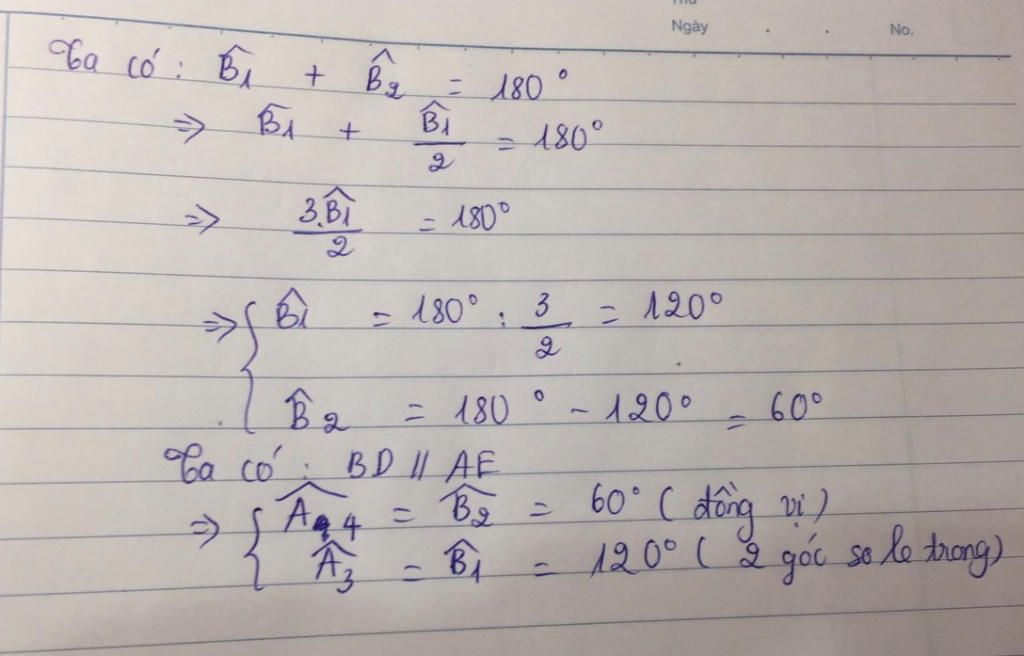 Thứ
Ngày . . No.
Ta có : B̂1 + B̂2 = 180°
=> B̂1 + B̂1/2 = 180°
=> 3.B̂1/2 = 180°
=> { B̂1 = 180° : 3/2 = 120°
B̂2 = 180° - 120° = 60°
Ta có : BD // AE
=> { Â4 = B̂2 = 60° ( đồng vị )
Â3 = B̂1 = 120° ( 2 góc so le trong)